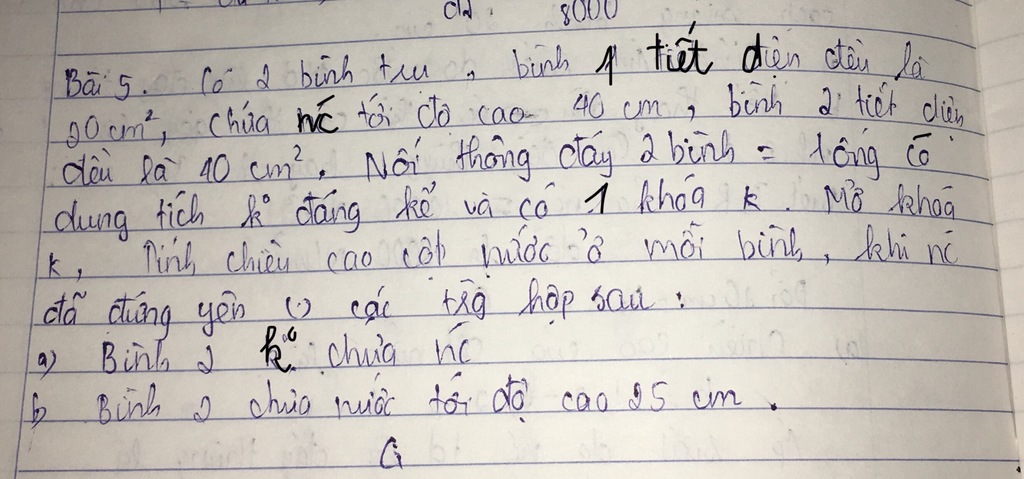 8000
Bài 5. Có 2 bình trụ, bình 1 tiết diện đều là
20 cm², chứa nc tới độ cao 40 cm, bình 2 tiết diện
đều là 40 cm². Nối thông đáy 2 bình = 1 ống có
dung tích k° đáng kể và có 1 khoá k. Mở khoá
k, Tính chiều cao cột nước ở mỗi bình, khi nc
đã đứng yên (.) các trg hợp sau:
a) Bình 2 k° chứa nc
b Bình 2 chứa nước tới độ cao 25 cm.
G